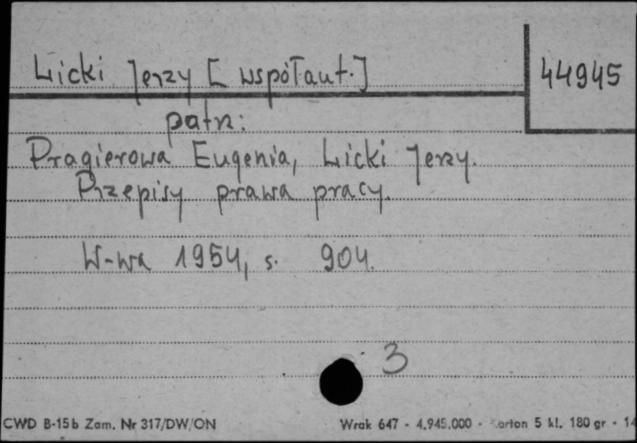 Licki Jerzy [współaut.]
44945
patrz:
Pragierowa Eugenia, Licki Jerzy.
Przepisy prawa pracy.
W-wa 1954, s. 904.
3
CWD B-15b Zam. Nr 317/DW/ON
Wrak 647 - 4.945.000 - Karton 5 kl. 180 gr -